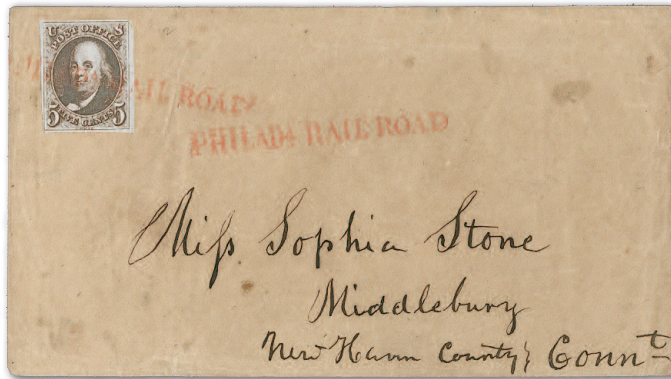 POST OFFICE
FIVE CENTS
5 5
RAIL ROAD
PHILADA RAIL ROAD
Miſs Sophia Stone
Middlebury
New Haven County Connt